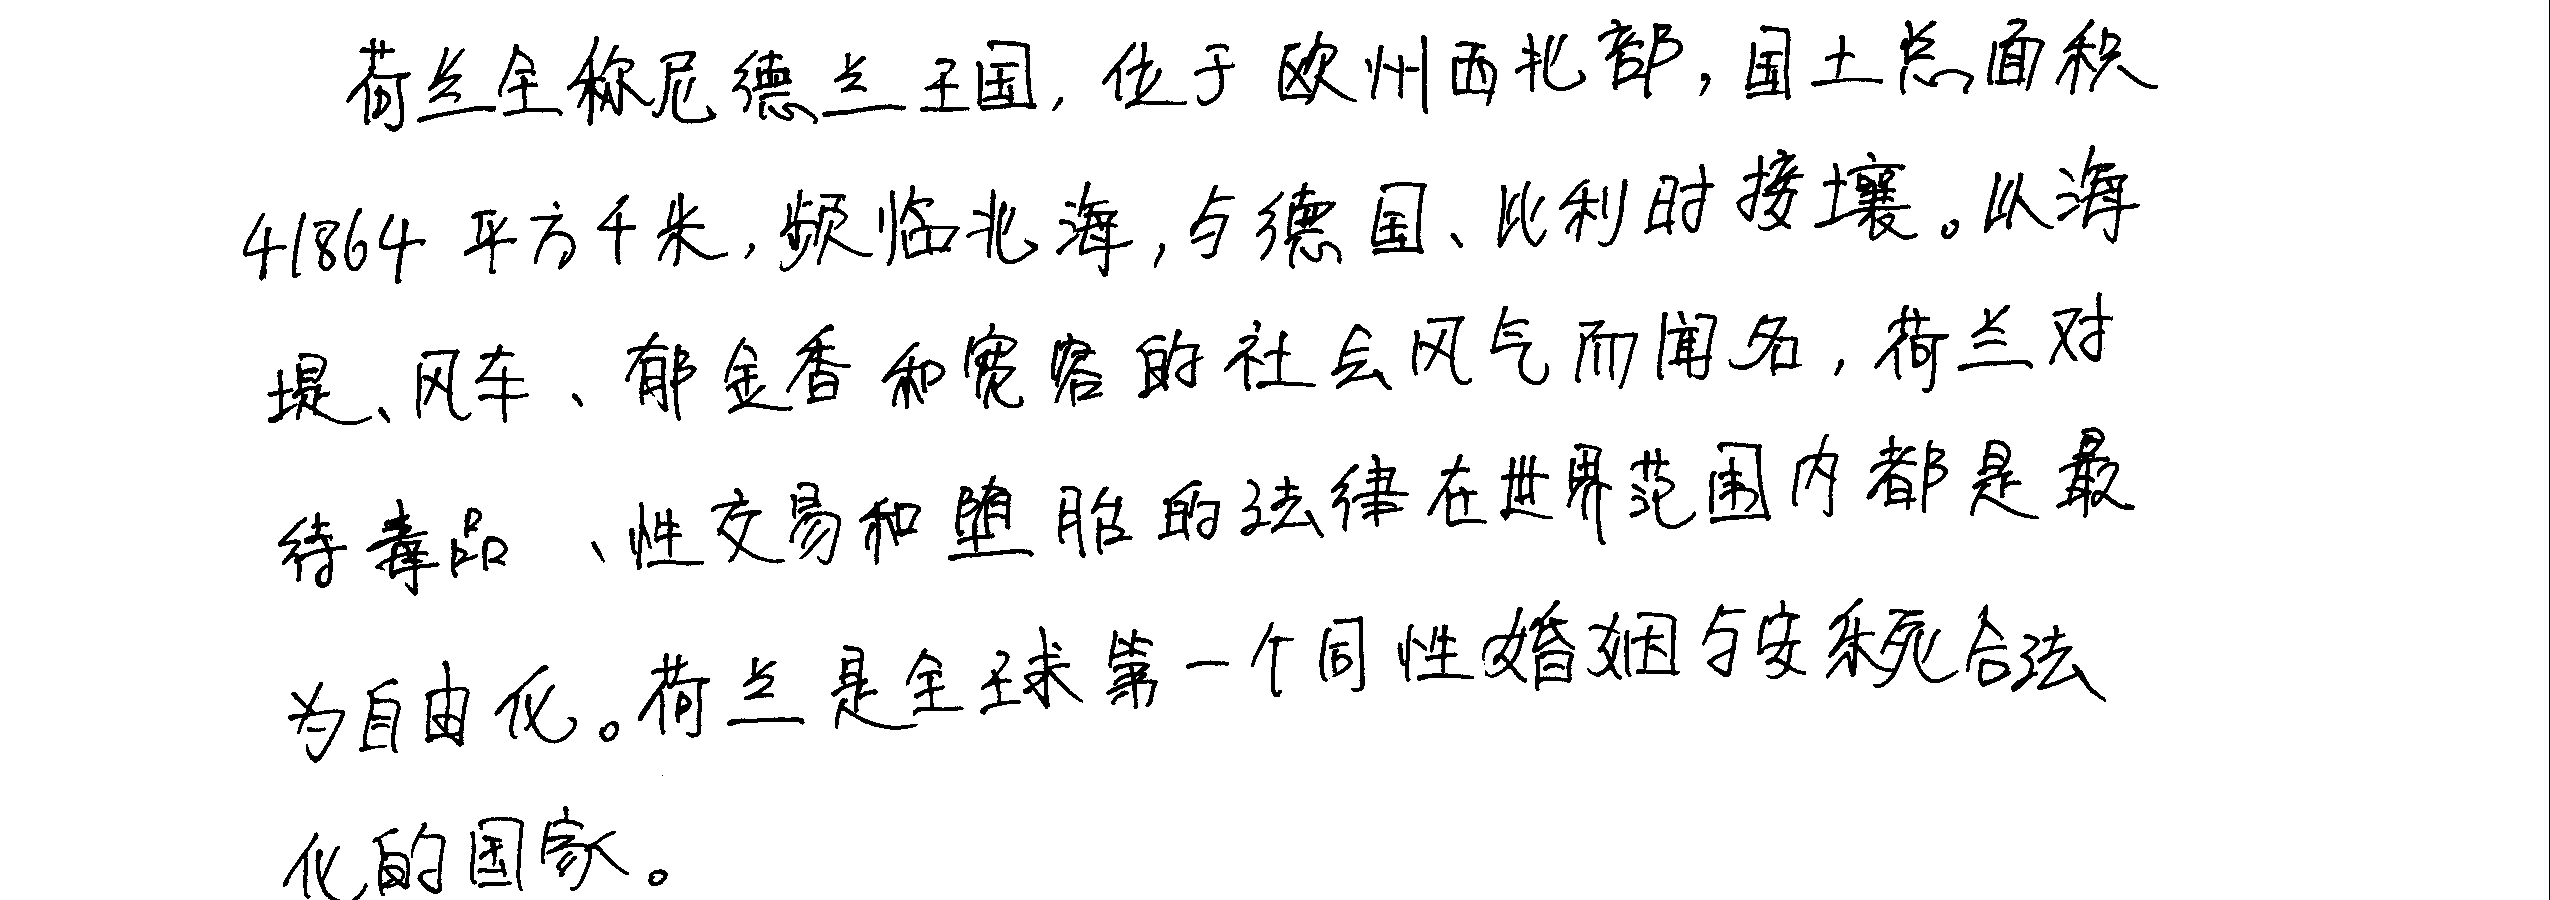 荷兰全称尼德兰王国,位于欧州西北部,国土总面积
41864平方千米,频临北海,与德国、比利时接壤。以海
堤、风车、郁金香和宽容的社会风气而闻名,荷兰对
待毒品、性交易和堕胎的法律在世界范围内都是最
为自由化。荷兰是全球第一个同性婚姻与安乐死合法
化的国家。